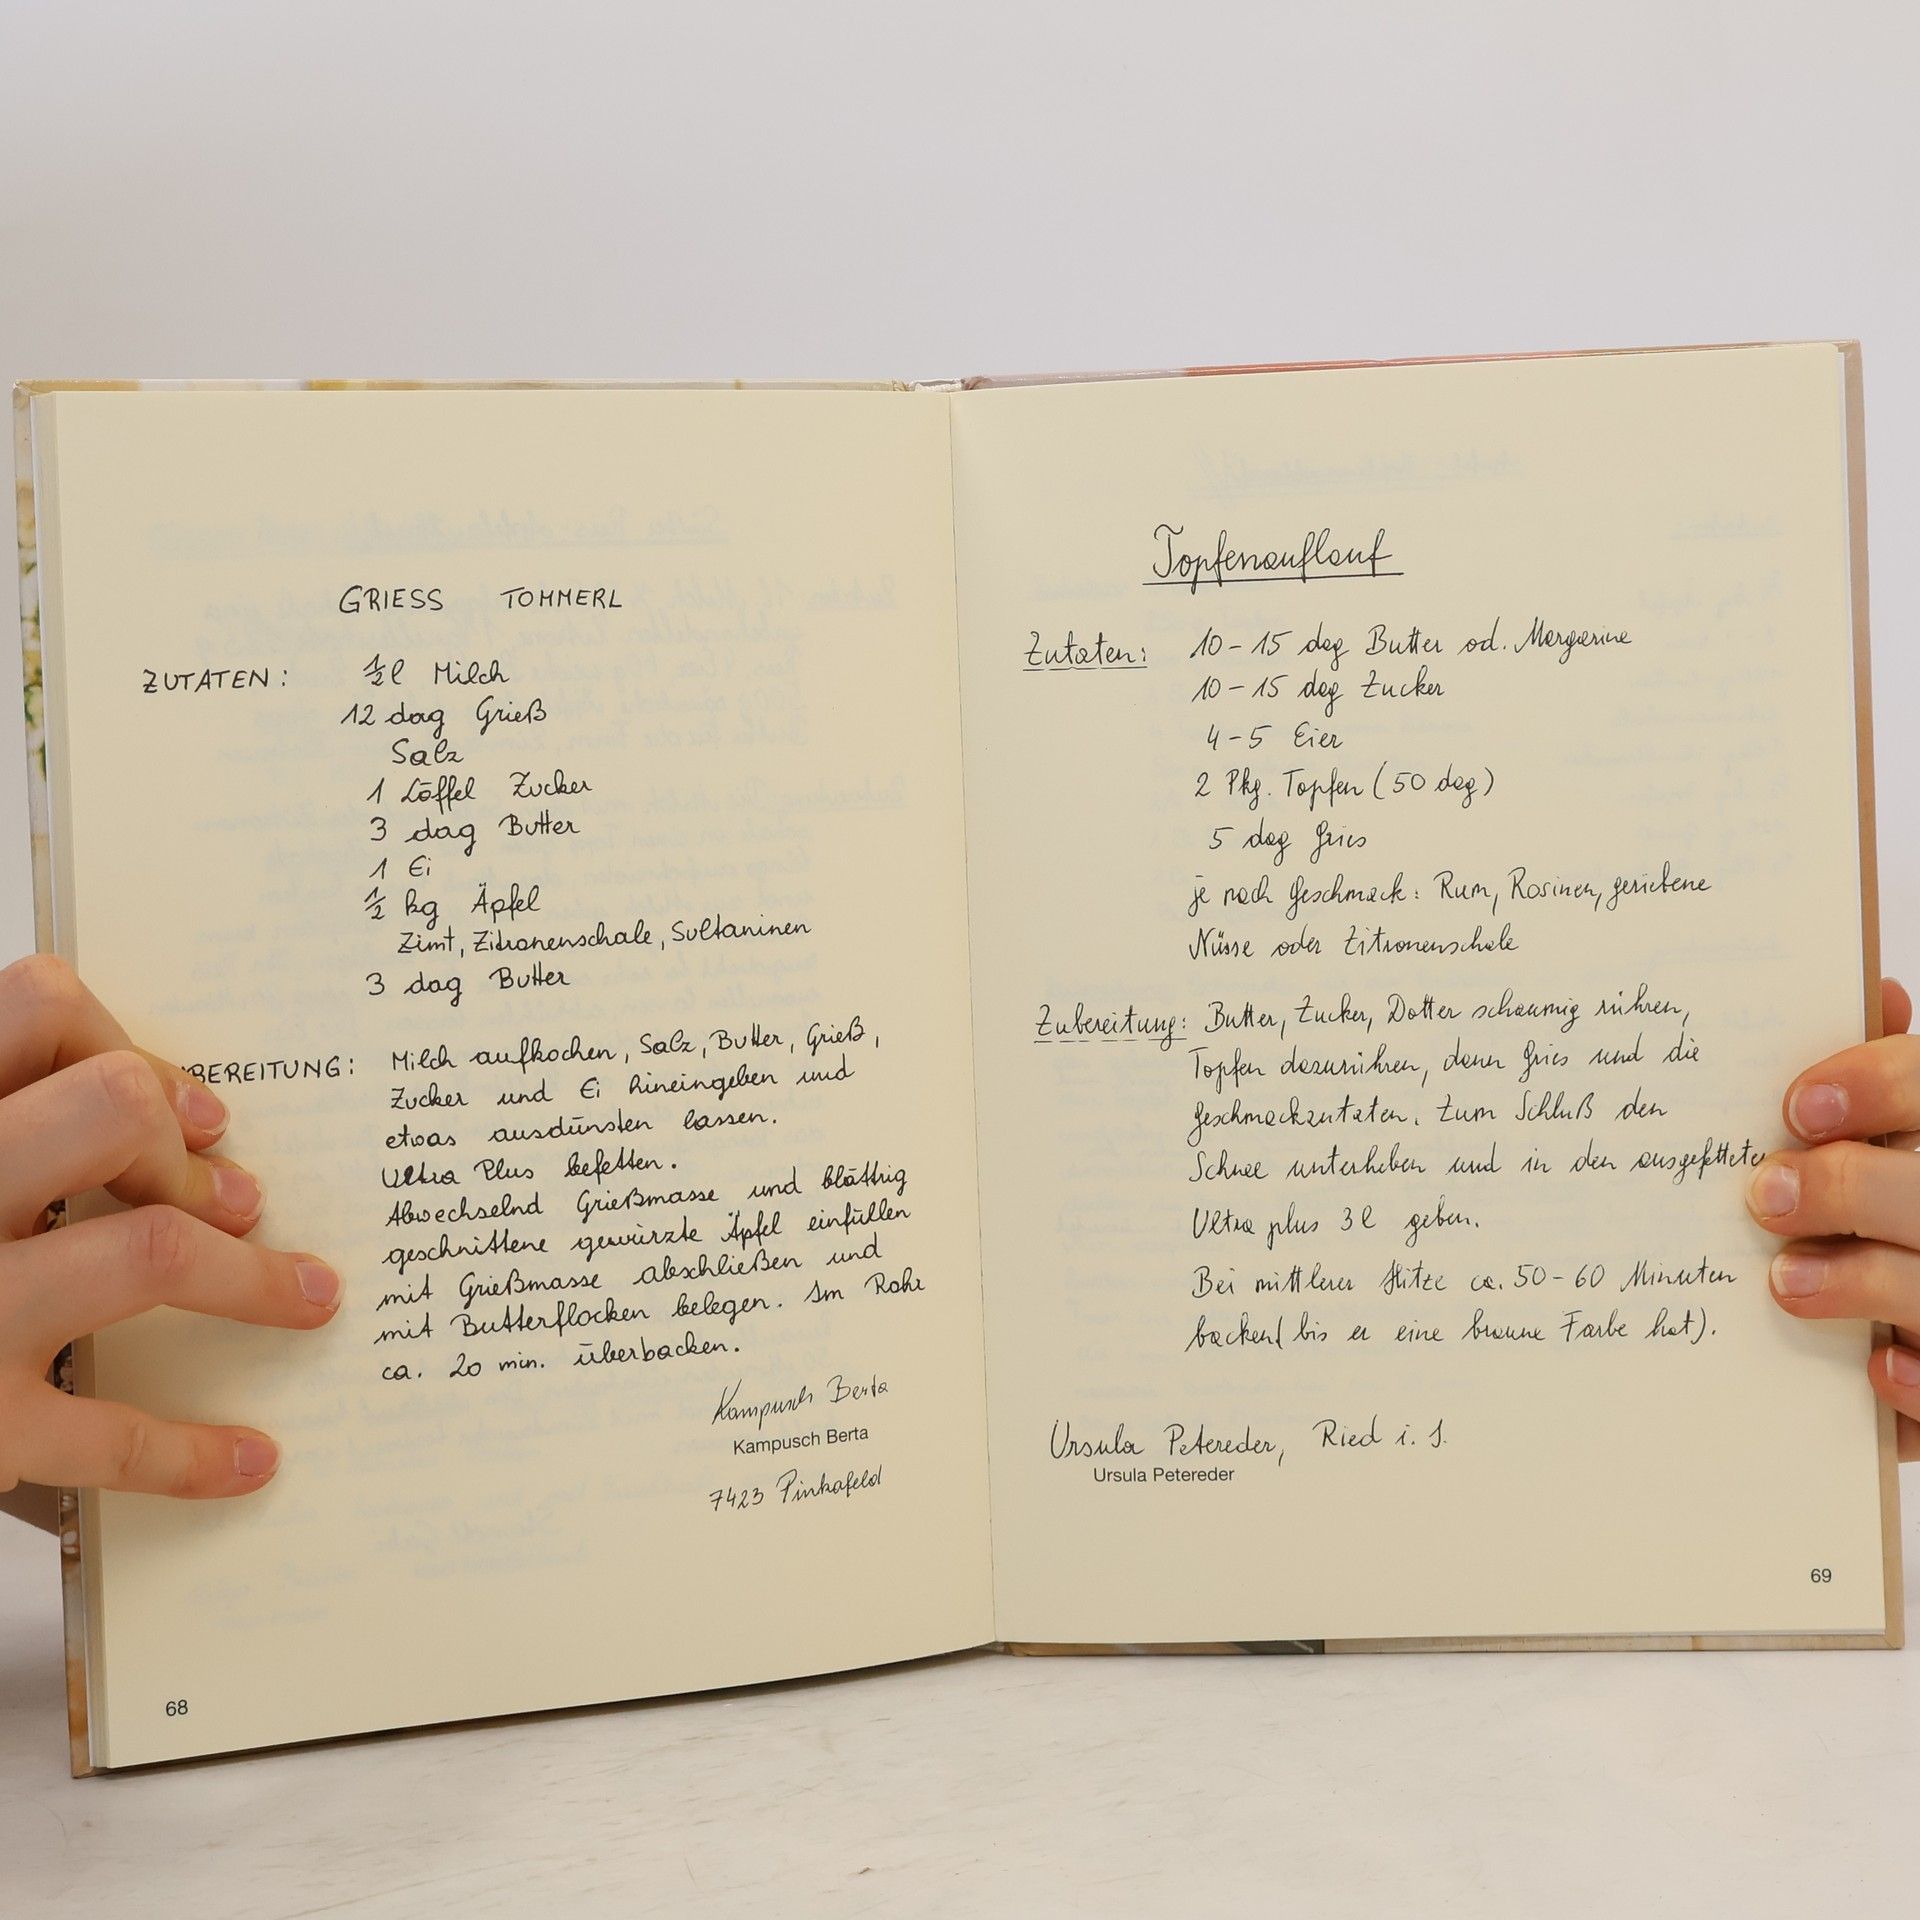 GRIESS TOMMERL
ZUTATEN: ½ l Milch
12 dag Grieß
Salz
1 Löffel Zucker
3 dag Butter
1 Ei
½ kg Äpfel
Zimt, Zitronenschale, Sultaninen
3 dag Butter
BEREITUNG: Milch aufkochen, Salz, Butter, Grieß,
Zucker und Ei hineingeben und
etwas ausdünsten lassen.
Ultra Plus befetten.
Abwechselnd Grießmasse und blättrig
geschnittene gewürzte Äpfel einfüllen
mit Grießmasse abschließen und
mit Butterflocken belegen. Im Rohr
ca. 20 min. überbacken.
Kampusch Berta
Kampusch Berta
7423 Pinkafeld
68
Topfenauflauf
Zutaten: 10-15 dag Butter od. Margarine
10-15 dag Zucker
4-5 Eier
2 Pkg. Topfen (50 dag)
5 dag Gries
je nach Geschmack: Rum, Rosinen, geriebene
Nüsse oder Zitronenschale
Zubereitung: Butter, Zucker, Dotter schaumig rühren,
Topfen dazurühren, dann Gries und die
Geschmackzutaten. Zum Schluß den
Schnee unterheben und in den ausgefetteten
Ultra plus 3 l geben.
Bei mittlerer Hitze ca. 50-60 Minuten
backen (bis er eine braune Farbe hat).
Ursula Petereder, Ried i. I.
Ursula Petereder
69